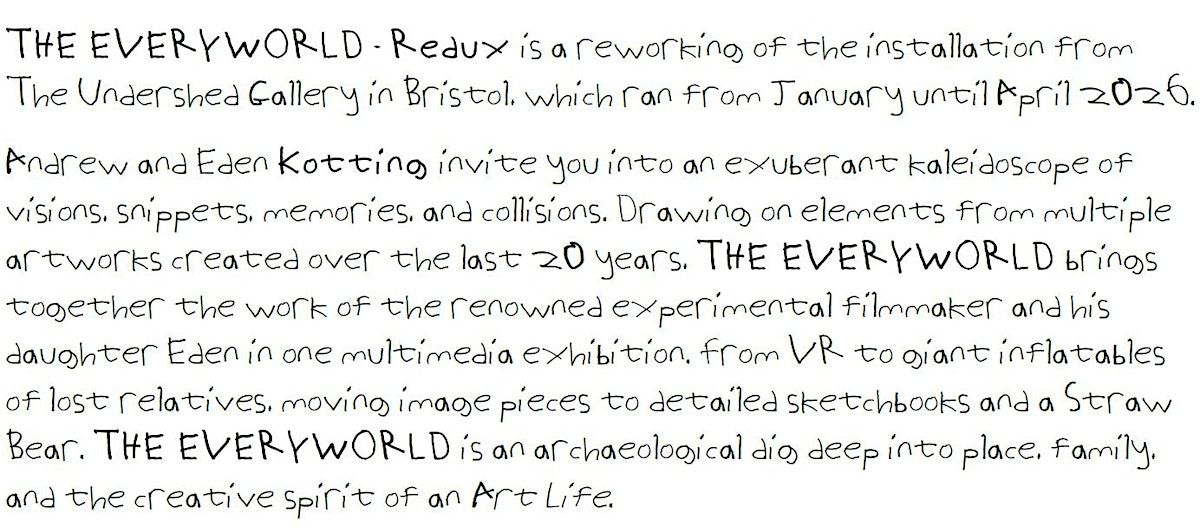 THE EVERYWORLD - Redux is a reworking of the installation from
The Undershed Gallery in Bristol, which ran from January until April 2026.
Andrew and Eden Kotting invite you into an exuberant kaleidoscope of
visions, snippets, memories, and collisions. Drawing on elements from multiple
artworks created over the last 20 years, THE EVERYWORLD brings
together the work of the renowned experimental filmmaker and his
daughter Eden in one multimedia exhibition, from VR to giant inflatables
of lost relatives, moving image pieces to detailed sketchbooks and a Straw
Bear. THE EVERYWORLD is an archaeological dig deep into place, family,
and the creative spirit of an Art Life.